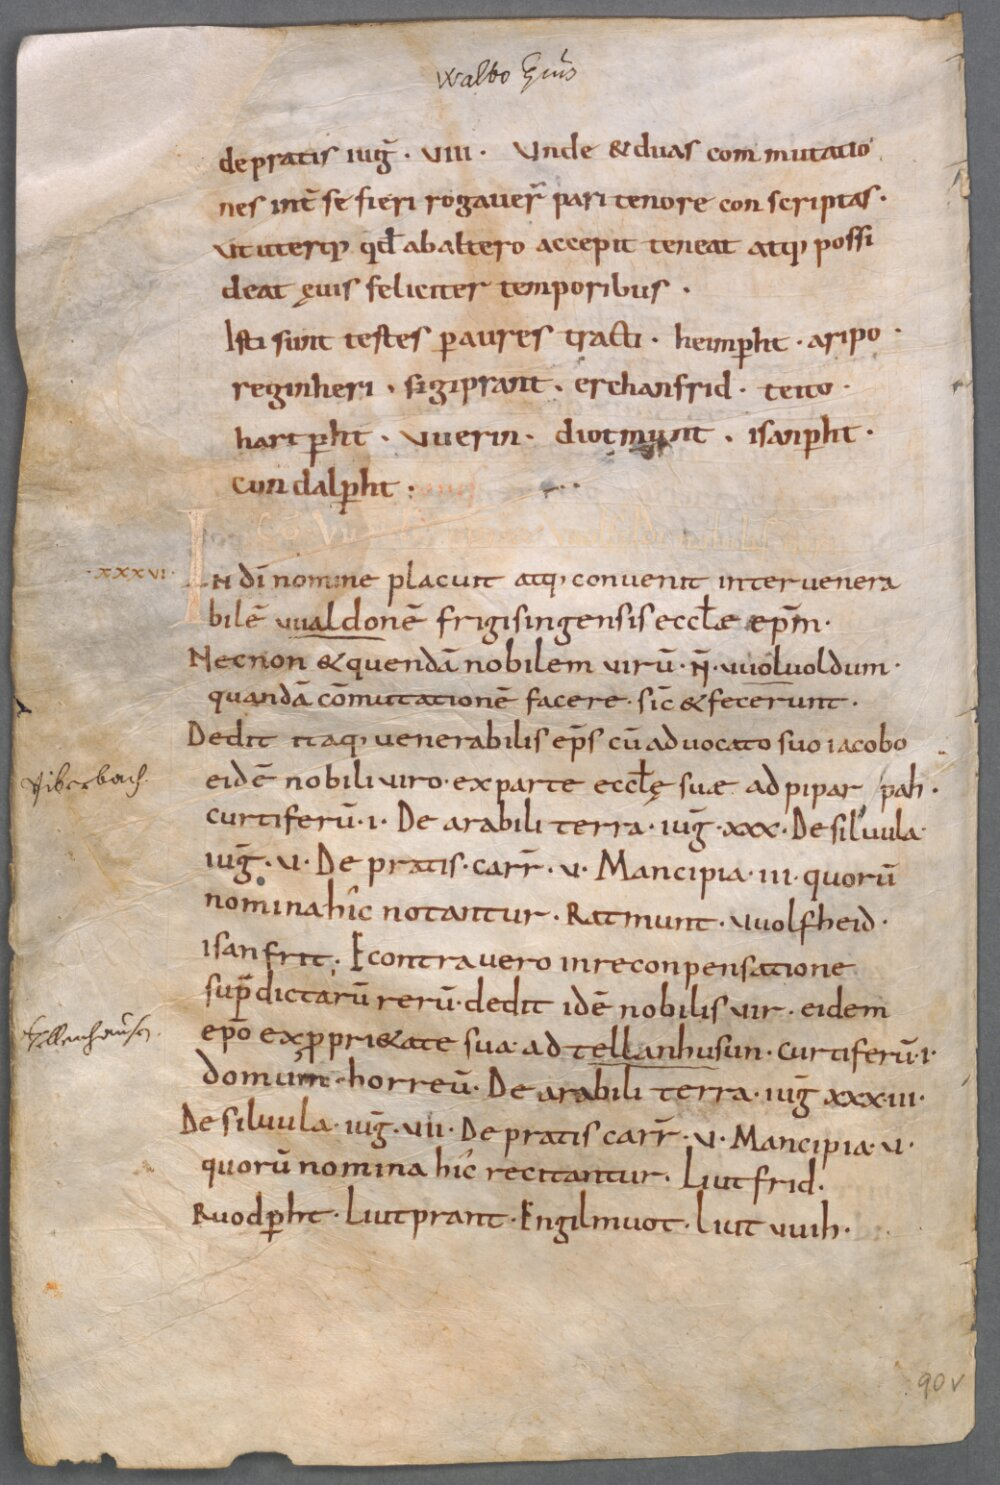 Walbo Epus
de pratis iug̃ · VIII · Unde & duas commutatio
nes int̃ se fieri rogaver̃ pari tenore conscriptas ·
ut uterq; qđ ab altero accepit teneat atq; possi
deat ęuis feliciter temporibus ·
Isti sunt testes p aures tracti · heimpht · aripo ·
reginheri · sigiprant · erchanfrid · teito ·
hartpht · vuerin · diotmunt · isanpht ·
Cundalpht ·
·XXXVI· IN dī nomine placuit atq; convenit inter venera
bilē vualdonē frigisingensis eccłae epm̄ ·
Necnon & quendā nobilem virū · N̄ · vuoluoldum ·
quandā cōmutationē facere · sic̄ & fecerunt ·
Dedit itaq; venerabilis ep̄s cū advocato suo iacobo
Piberbach
eidē nobili viro · ex parte eccłę suae ad pipar pah ·
curtiferū · I · De arabili terra · iug̃ · XXX · De siluula
iug̃ · V · De pratis · carr̃ · V · Mancipia · III · quorū
nomina hic notantur · Ratmunt · vuolfheid ·
isanfrit · Econtra vero in reconpensatione
sup̄dictarū rerū · dedit idē nobilis vir · eidem
Tellenhausen
ep̄o ex ppri&ate sua · ad tellanhusun · curtiferū · I ·
domum · horreū · De arabili terra · iug̃ XXX · III ·
De siluula · iug̃ · VII · De pratis carr̃ · V · Mancipia · V ·
quorū nomina hic recitantur · Liutfrid ·
Ruodpht · Liutprant · Engilmuot · Liut vuih ·
90v